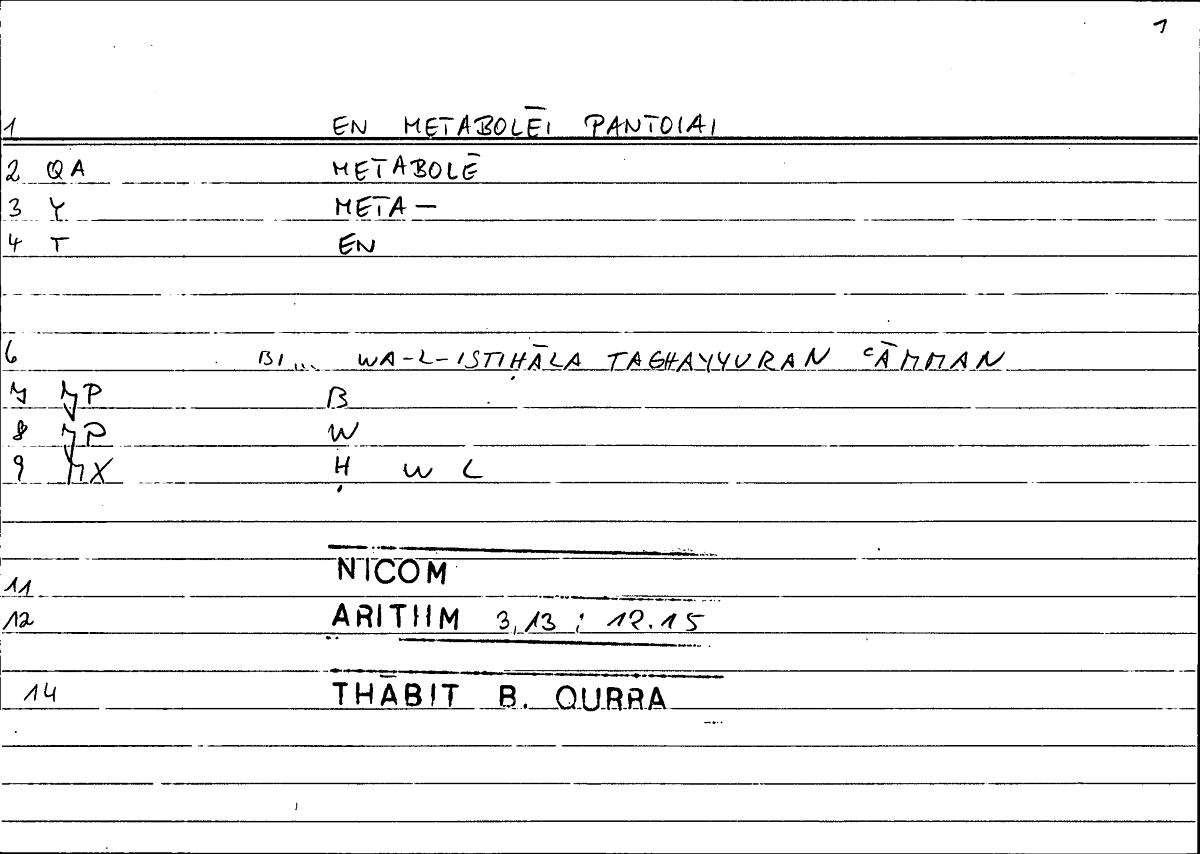 1
1 EN METABOLĒI PANTOIAI
2 QA METABOLĒ
3 Y META –
4 T EN
6 BI... WA-L-ISTIḤĀLA TAGHAYYURAN ʿĀMMAN
7 P B
8 P W
9 X Ḥ W L
11 NICOM
12 ARITHM 3,13 ; 12.15
14 THĀBIT B. QURRA